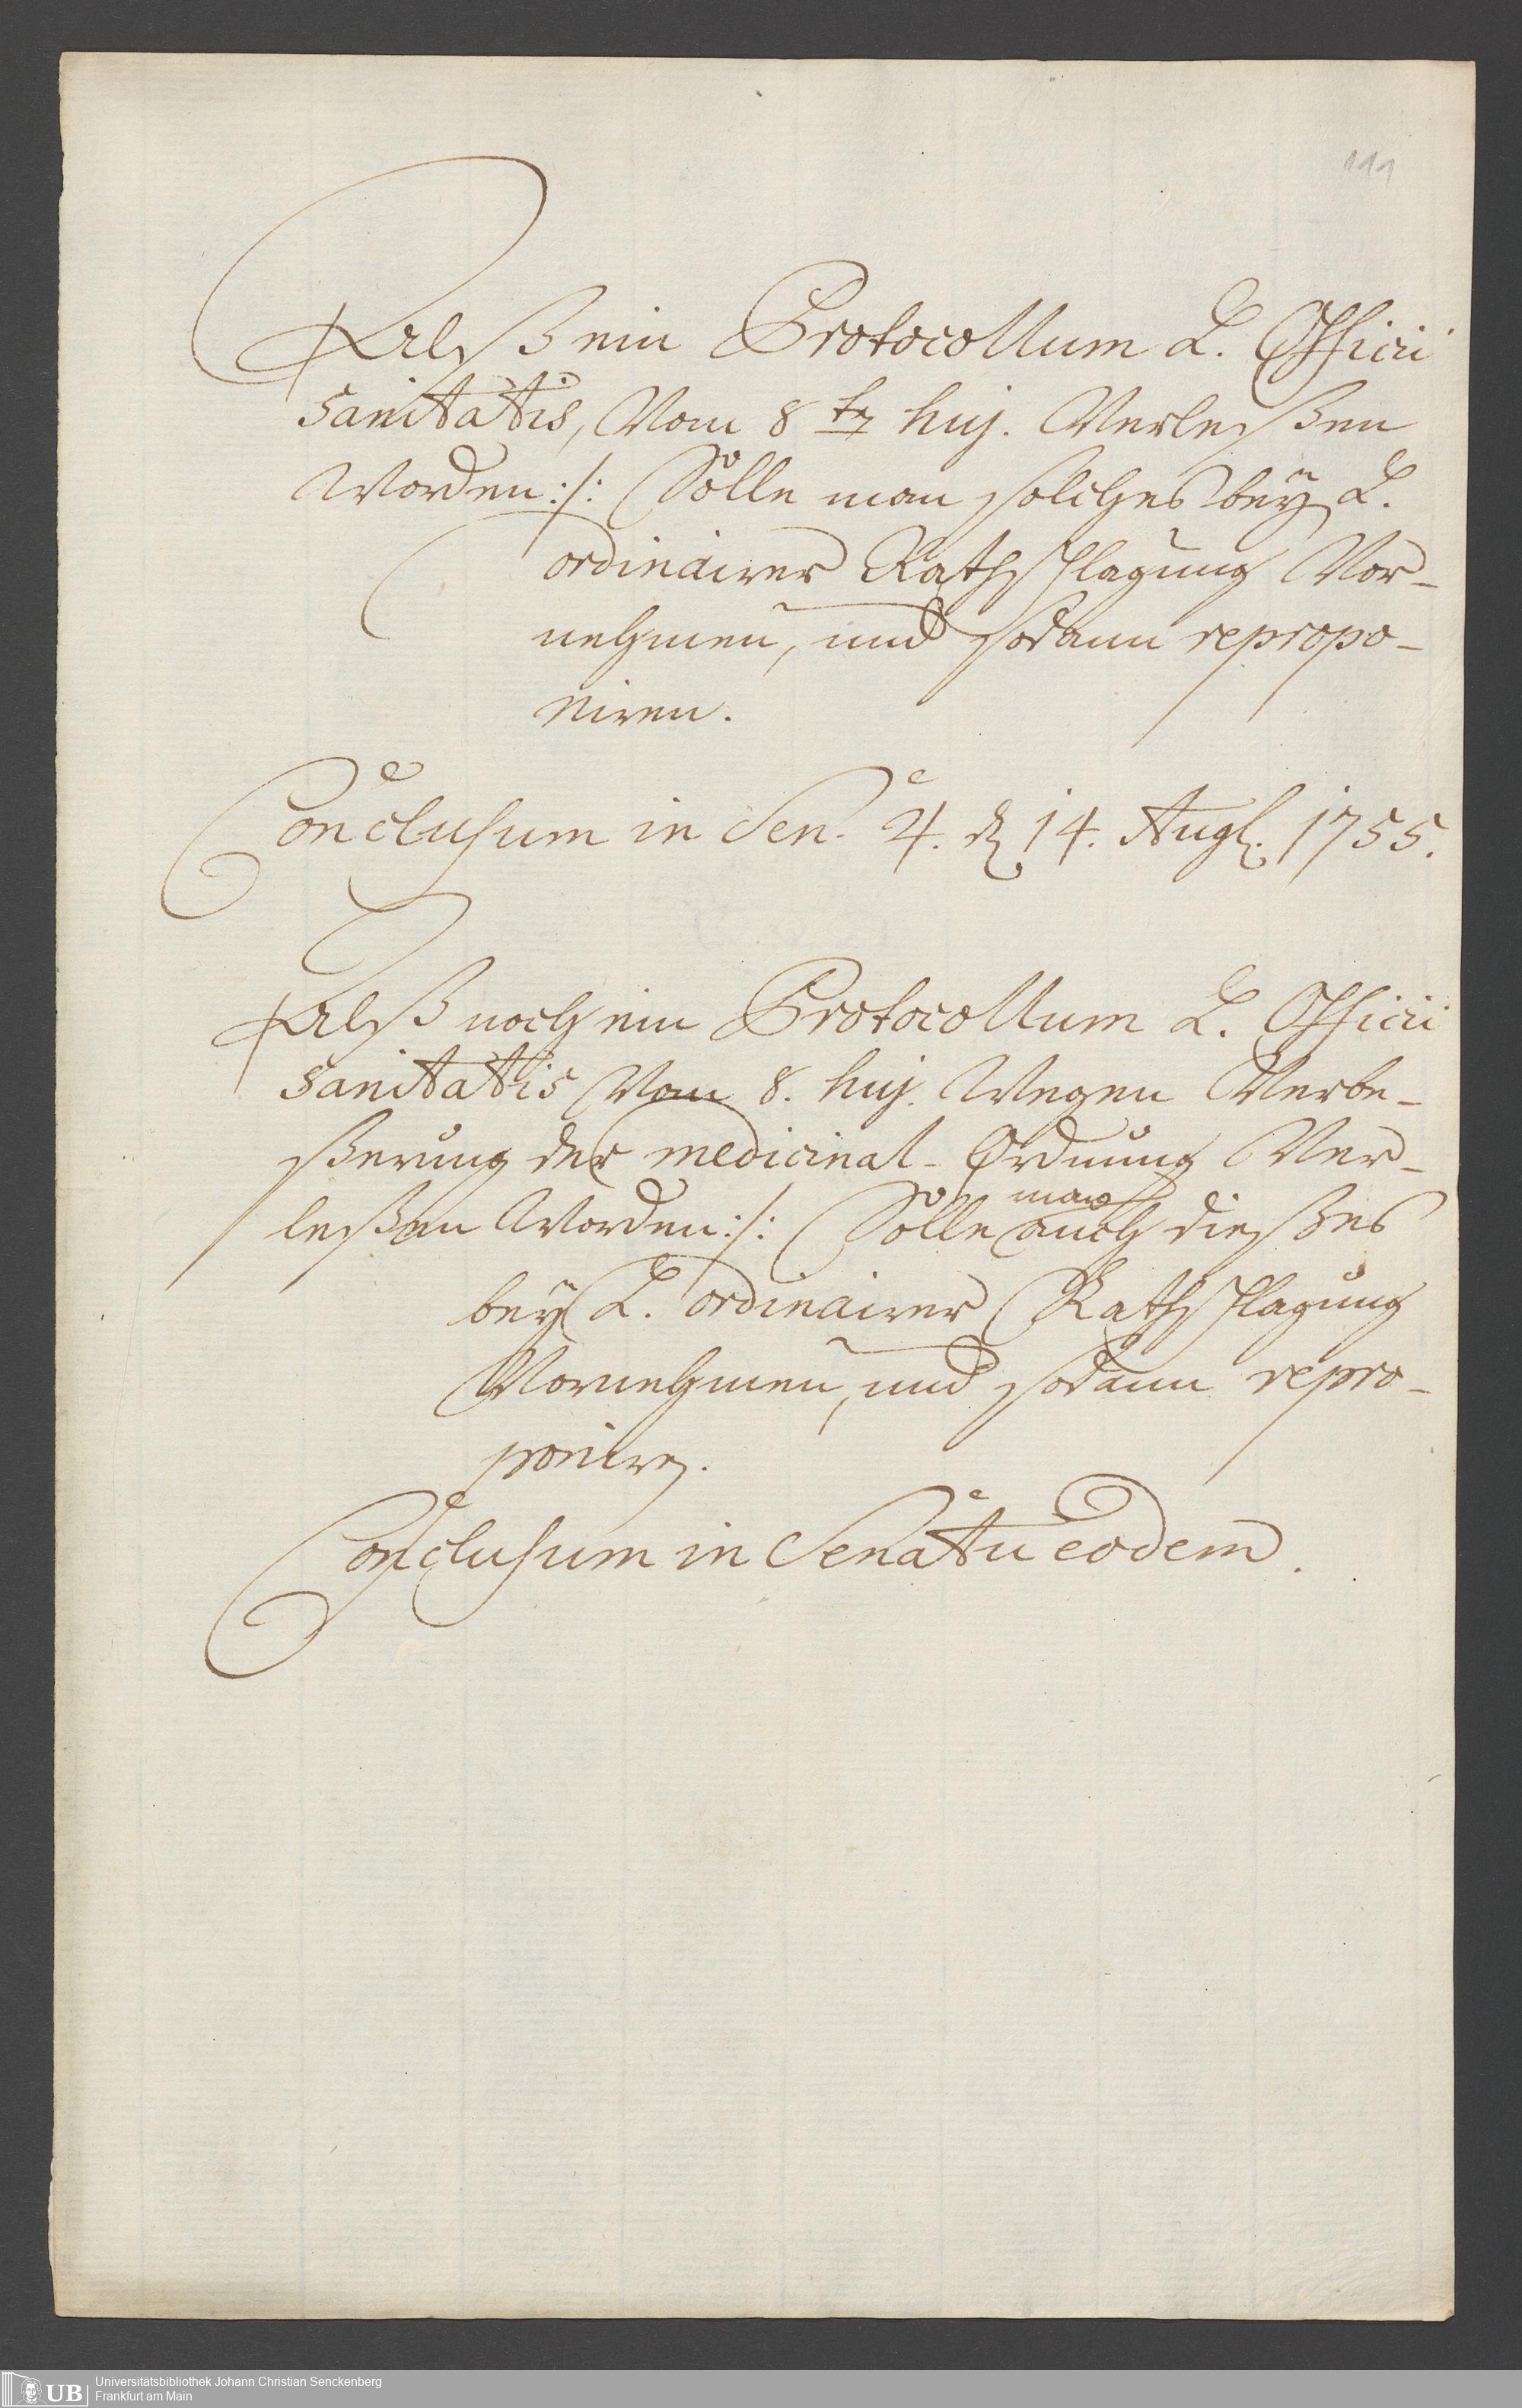 111
Alß ein Protocollum L. Officii
Sanitatis, Vom 8ten huj. Verleßen
Worden :/: Solle man solches bey L.
ordinairer Rathschlagung Vor-
nehmen, und sodann repropo-
niren.
Conclusum in Sen. 4. d. 14. Aug. 1755.
Alß noch ein Protocollum L. Officii
Sanitatis Vom 8. huj. Wegen Verbe-
ßerung der Medicinal-Ordnung Ver-
leßen Worden :/: Solle man auch dießes
bey L. ordinairer Rathschlagung
Vornehmen, und sodann repro-
poniren.
Conclusum in Senatu eodem.
UB
Universitätsbibliothek Johann Christian Senckenberg
Frankfurt am Main